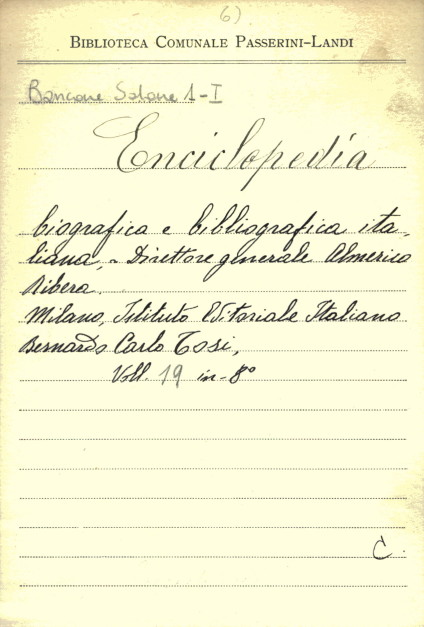 6)
BIBLIOTECA COMUNALE PASSERINI-LANDI
Bancone Salone 1-I
Enciclopedia
biografica e bibliografica ita-
liana, - Direttore generale Almerico
Ribera.
Milano, Istituto Editoriale Italiano
Bernardo Carlo Tosi,
Voll. 19 in-8°
C.